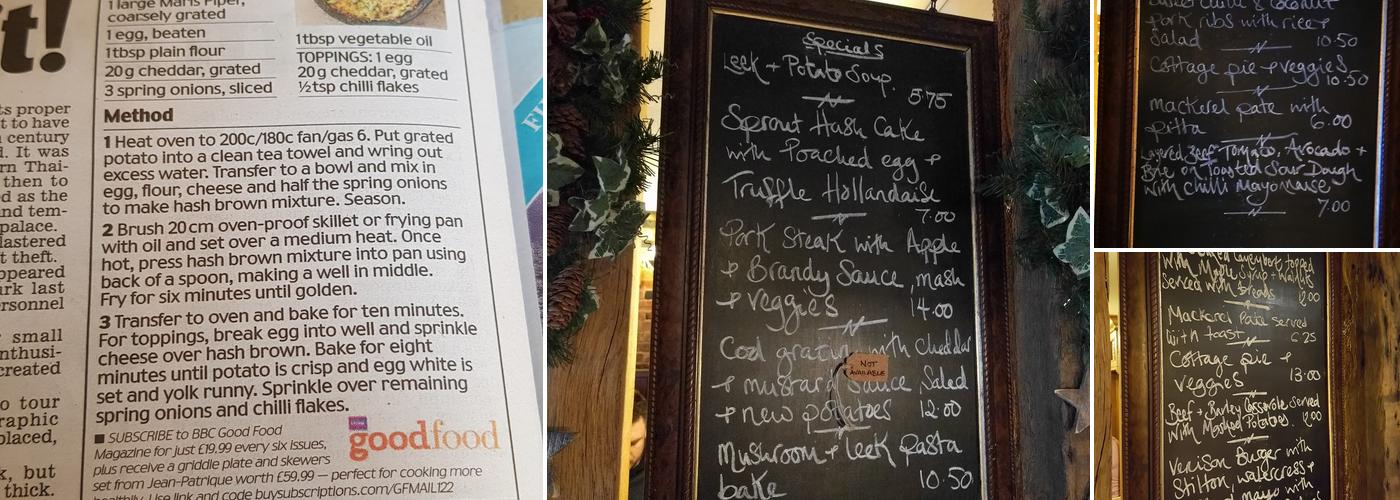 t!
ts proper
t to have
century
d. It was
rn Thai-
then to
ed as the
nd tem-
palace.
lastered
t theft.
ppeared
urk last
ersonnel
small
nthusi-
created
o tour
raphic
placed,
k, but
thick.
1 large Maris Piper,
coarsely grated
1 egg, beaten
1 tbsp plain flour
20g cheddar, grated
3 spring onions, sliced
1 tbsp vegetable oil
TOPPINGS: 1 egg
20g cheddar, grated
½tsp chilli flakes
Method
1 Heat oven to 200c/180c fan/gas 6. Put grated
potato into a clean tea towel and wring out
excess water. Transfer to a bowl and mix in
egg, flour, cheese and half the spring onions
to make hash brown mixture. Season.
2 Brush 20cm oven-proof skillet or frying pan
with oil and set over a medium heat. Once
hot, press hash brown mixture into pan using
back of a spoon, making a well in middle.
Fry for six minutes until golden.
3 Transfer to oven and bake for ten minutes.
For toppings, break egg into well and sprinkle
cheese over hash brown. Bake for eight
minutes until potato is crisp and egg white is
set and yolk runny. Sprinkle over remaining
spring onions and chilli flakes.
■ SUBSCRIBE to BBC Good Food
Magazine for just £19.99 every six issues,
plus receive a griddle plate and skewers
set from Jean-Patrique worth £59.99 — perfect for cooking more
healthily. Use link and code buysubscriptions.com/GFMAIL122
goodfood
FI
Specials
Leek + Potato Soup.
5.75
Sprout Hash Cake
with Poached egg +
Truffle Hollandaise
7.00
Pork Steak with Apple
+ Brandy Sauce, mash
+ veggies 14.00
Cod gratin with cheddar
+ mustard sauce, Salad
+ new potatoes 12.00
NOT
AVAILABLE
Mushroom + Leek Pasta
bake 10.50
& coconut
pork ribs with rice +
Salad 10.50
Cottage pie + veggies
10.50
Mackerel pate with
pitta 6.00
Layered Beef Tomato, Avocado +
Brie on Toasted Sour Dough
with chilli Mayonaise
7.00
topped
with Maple Syrup + Walnuts
served with breads 12.00
Mackerel Pate served
with toast 6.25
Cottage pie +
veggies 13.00
Beef + Barley Casserole served
with Mashed Potatoes 12.00
Venison Burger with
Stilton, watercress +
mayo with